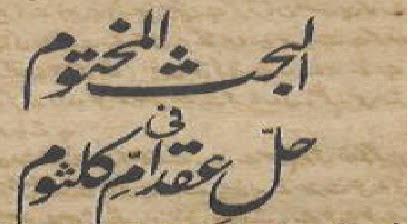 البحث المختوم
في
حلّ عقد امّ كلثوم